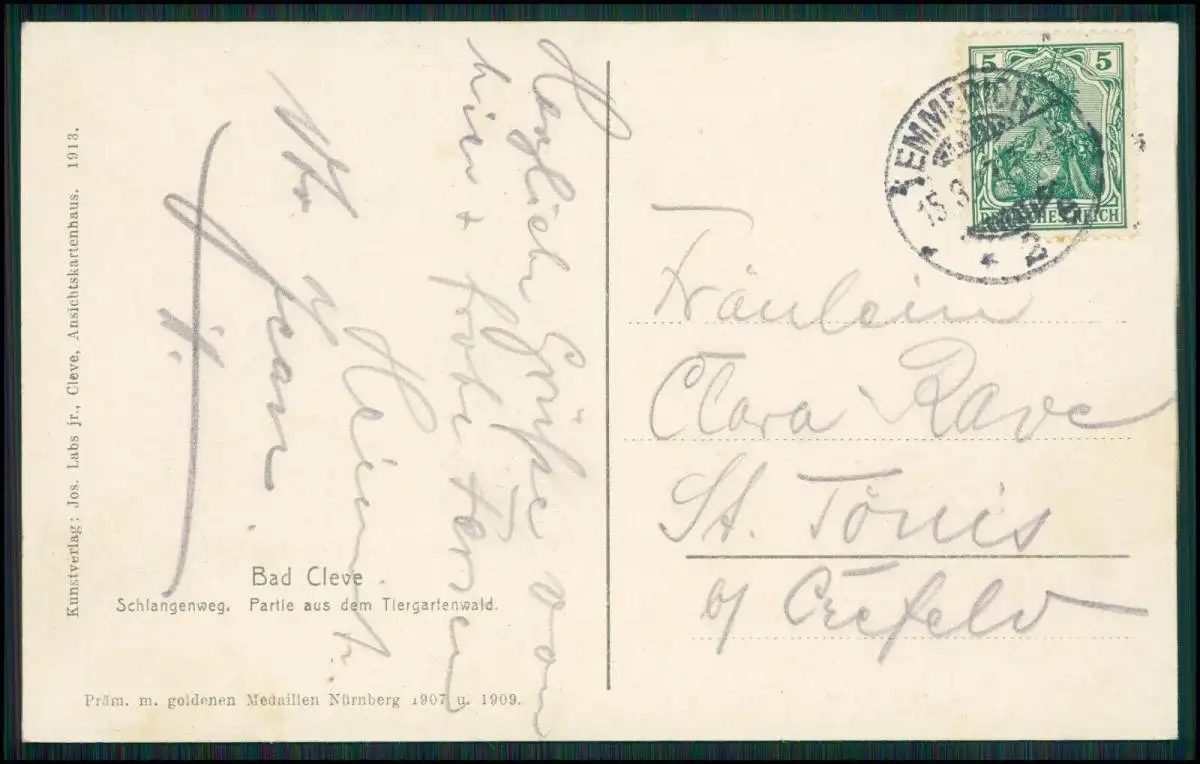 Kunstverlag: Jos. Labs jr., Cleve, Ansichtskartenhaus. 1913.
Herzliche Grüße von
hier + frohe
Jean
Bad Cleve
Schlangenweg. Partie aus dem Tiergartenwald.
Präm. m. goldenen Medaillen Nürnberg 1907 u. 1909.
5 5
DEUTSCHES REICH
EMMERICH
15.3.
* * 2
Fräulein
Clara Rave
St. Tönis
b/ Crefeld